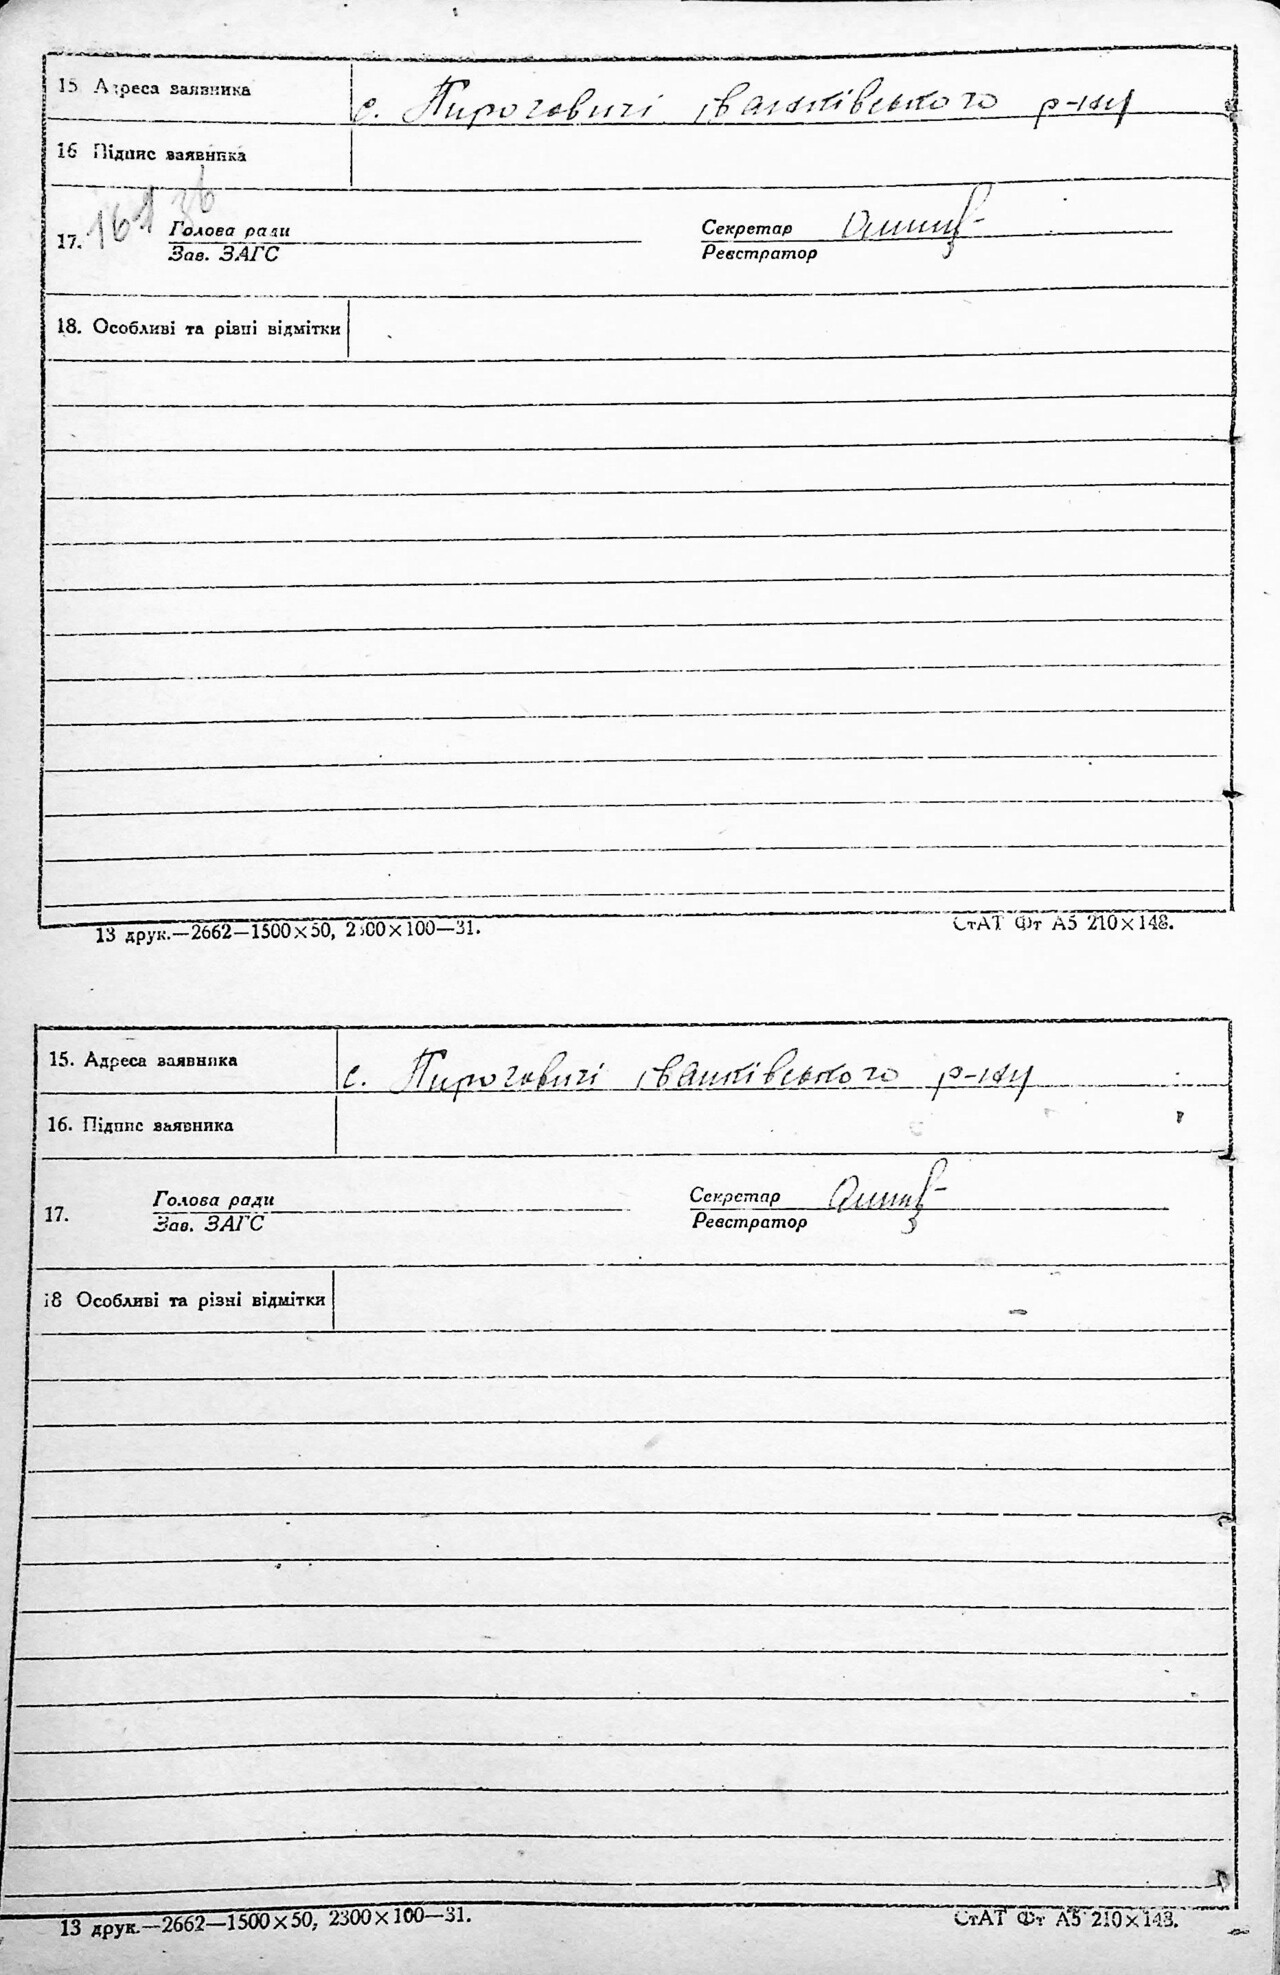 15 Адреса заявника с. Пироговичі іванківського р-ну
16 Підпис заявника
161 36
17. Голова ради Секретар
Зав. ЗАГС Реєстратор
18. Особливі та різні відмітки
13 друк.—2662—1500×50, 2300×100—31. СтАТ Фт А5 210×148.
15. Адреса заявника с. Пироговичі іванківського р-ну
16. Підпис заявника
17. Голова ради Секретар
Зав. ЗАГС Реєстратор
18 Особливі та різні відмітки
13 друк.—2662—1500×50, 2300×100—31. СтАТ Фт А5 210×148.